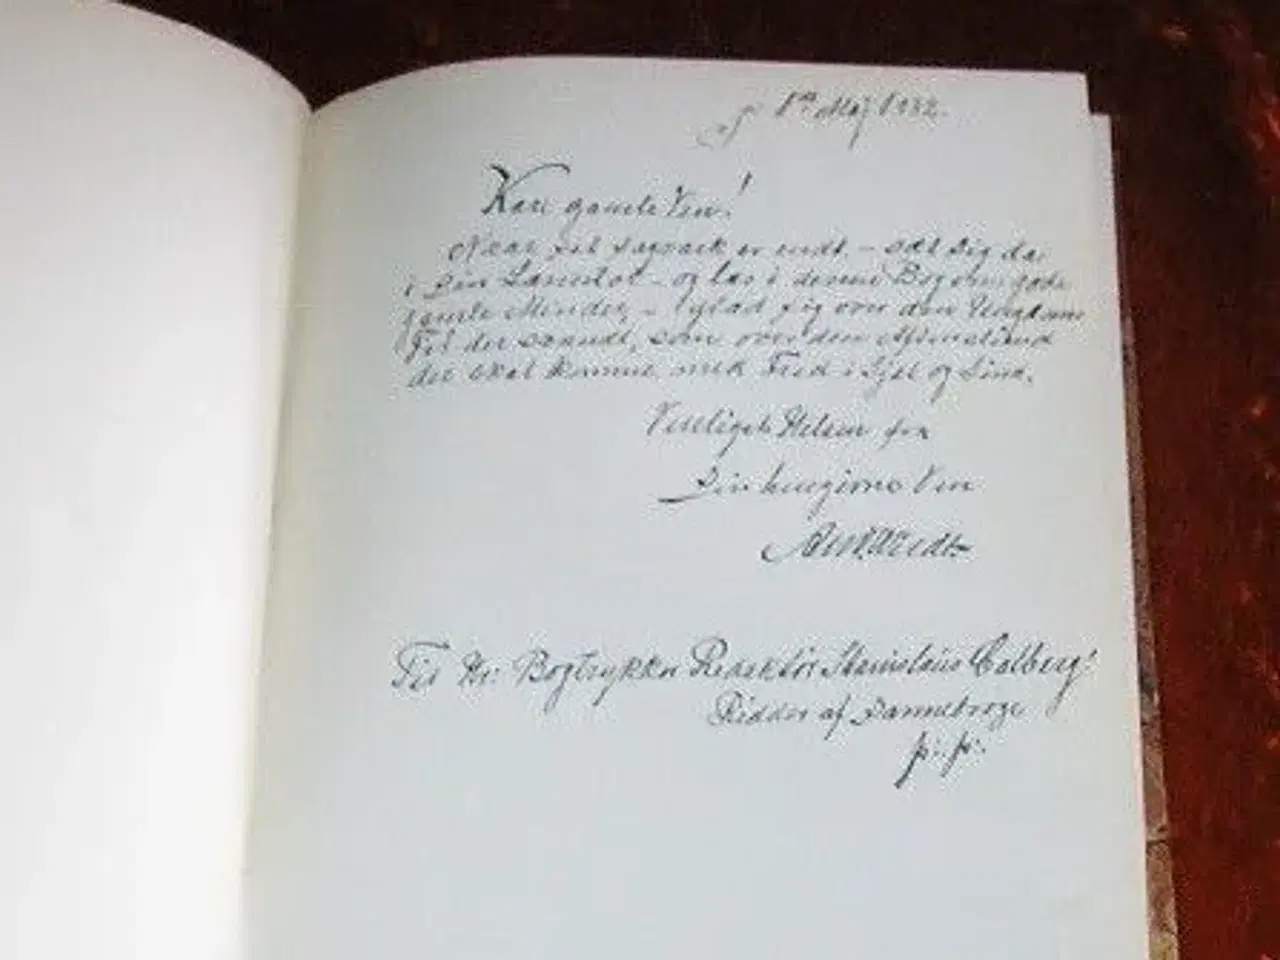 1ste Maj 1932.
Kære gamle Ven!
Naar dit Dagværk er endt – sæt dig da
i din Lænestol – og læs i denne Bog om gode
gamle Minder, – glæd dig over den Ungdom
der svandt, som over den Alderdom
der skal komme med Fred i Sjæl og Sind.
Venligste Hilsen fra
Din hengivne Ven
Til Hr: Bogtrykker Redaktør Stanislaus Calberg!
Ridder af Dannebroge
p:. p:.